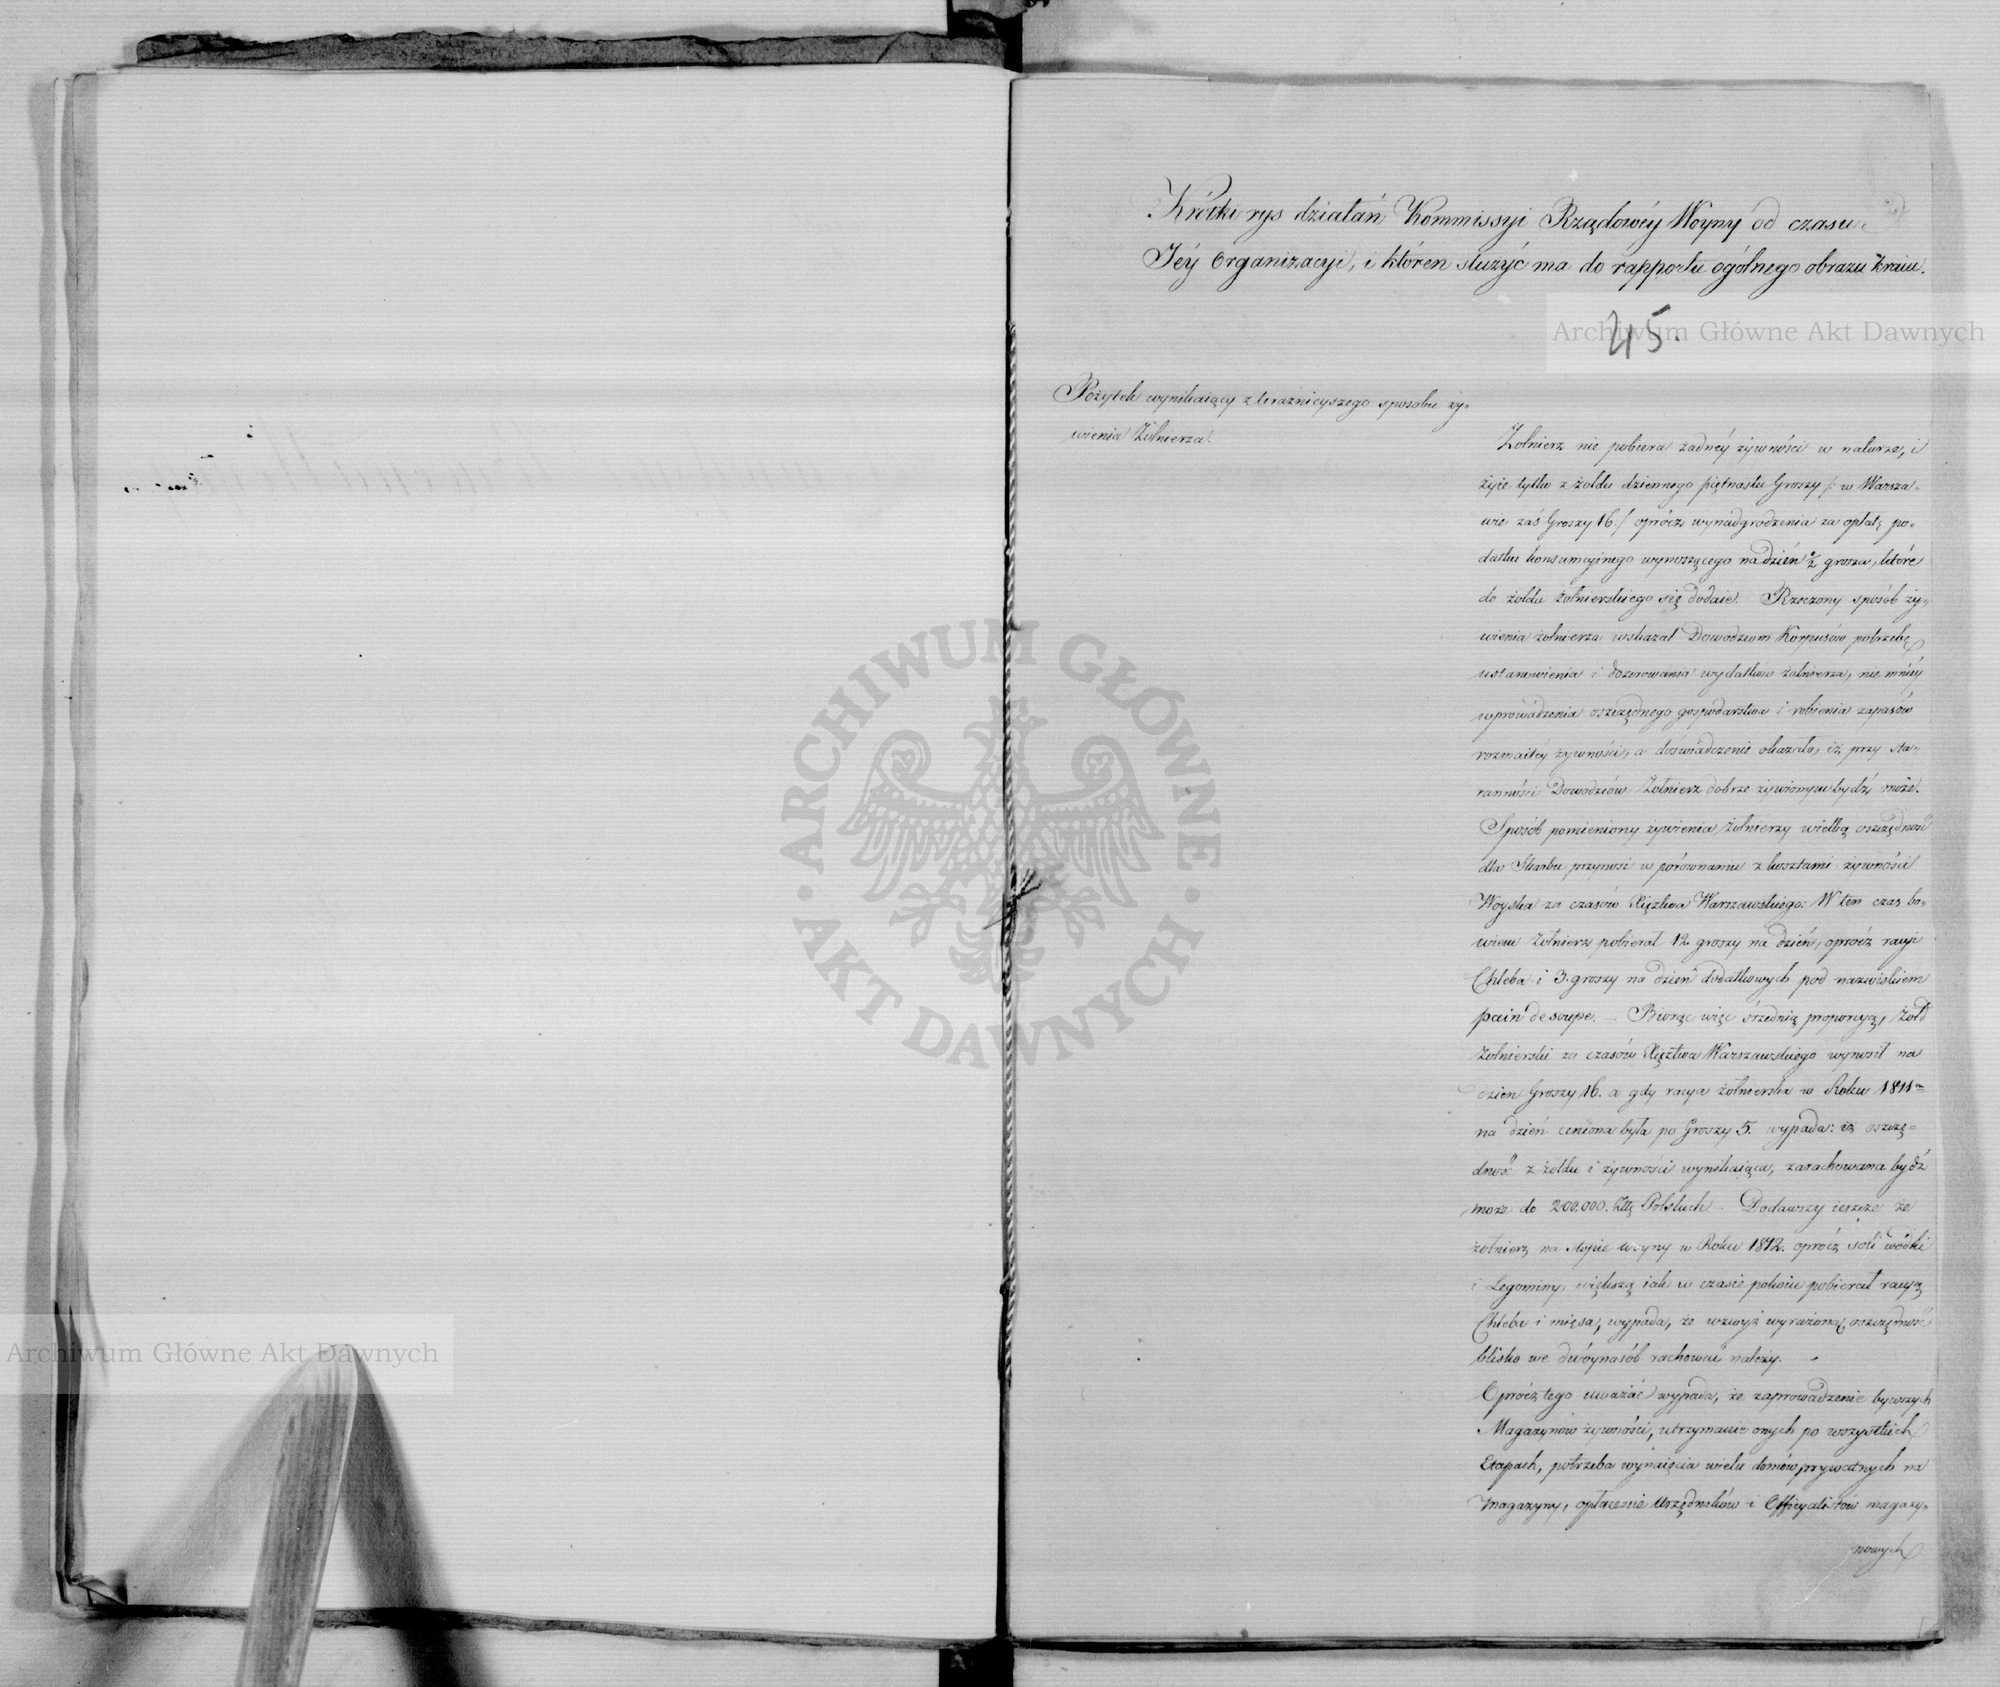 Krótki rys działań Kommissyi Rządowéy Woyny od czasu
Jéy Organizacyi, i któren służyć ma do rapportu ogólnego obrazu kraiu.
45.
Archiwum Główne Akt Dawnych
Pożytek wynikaiący z teraźnieyszego sposobu ży-
wienia Żołnierza.
Żołnierz nie pobiera żadnéy żywności w naturze, i
żyie tylko z żołdu dziennego piętnastu Groszy /: w Warsza-
wie zaś Groszy 16./ oprócz wynadgrodzenia za opłatę po-
datku konsumcyjnego wynoszącego na dzień ½ grosza, które
do żołdu żołnierskiego się dodaie. Rzeczony sposób ży-
wienia żołnierza wskazał Dowodzcom Korpusów potrzebę
ustanowienia i dozorowania wydatków żołnierza, nie mniéy
wprowadzenia oszczędnego gospodarstwa i robienia zapasów
rozmaitéy żywności, a doświadczenie okazało, iż przy sta-
ranności Dowodzców Żołnierz dobrze żywionym bydź może.
Sposób pomieniony żywienia żołnierzy wielką oszczędność
dla Skarbu przynosi w porównaniu z kosztami żywności
Woyska za czasów Xięztwa Warszawskiego: W ten czas bo-
wiem Żołnierz pobierał 12 groszy na dzień, oprócz racyi
Chleba i 3. groszy na dzień dodatkowych pod nazwiskiem
pain de soupe. – Biorąc więc średnią proporcyą, żołd
żołnierski za czasów Xięztwa Warszawskiego wynosił na
dzien Groszy 16. a gdy racya żołnierska w Roku 1811m
na dzień ceniona była po Groszy 5. wypada: iż oszczę-
dność z żołdu i żywności wynikaiąca, zarachowana bydź
może do 200.000. Złłp Polskich – Dodawszy ieszcze że
żołnierz na stopie woyny w Roku 1812. oprócz soli wódki
i Legominy, większą iak w czasie pokoiu pobierał racyą
Chleba i mięsa, wypada, że wzwyż wyrażoną oszczędność
blisko we dwóynasób rachować należy.
Oprócz tego uważać wypada, że zaprowadzenie bywszych
Magazynów żywności, utrzymanie onych po wszystkich
Etapach, potrzeba wynaięcia wielu domów prywatnych na
magazyny, opłacenie Urzędników i Officyalistów magazy-
nowych
ARCHIWUM GŁÓWNE
AKT DAWNYCH
Archiwum Główne Akt Dawnych